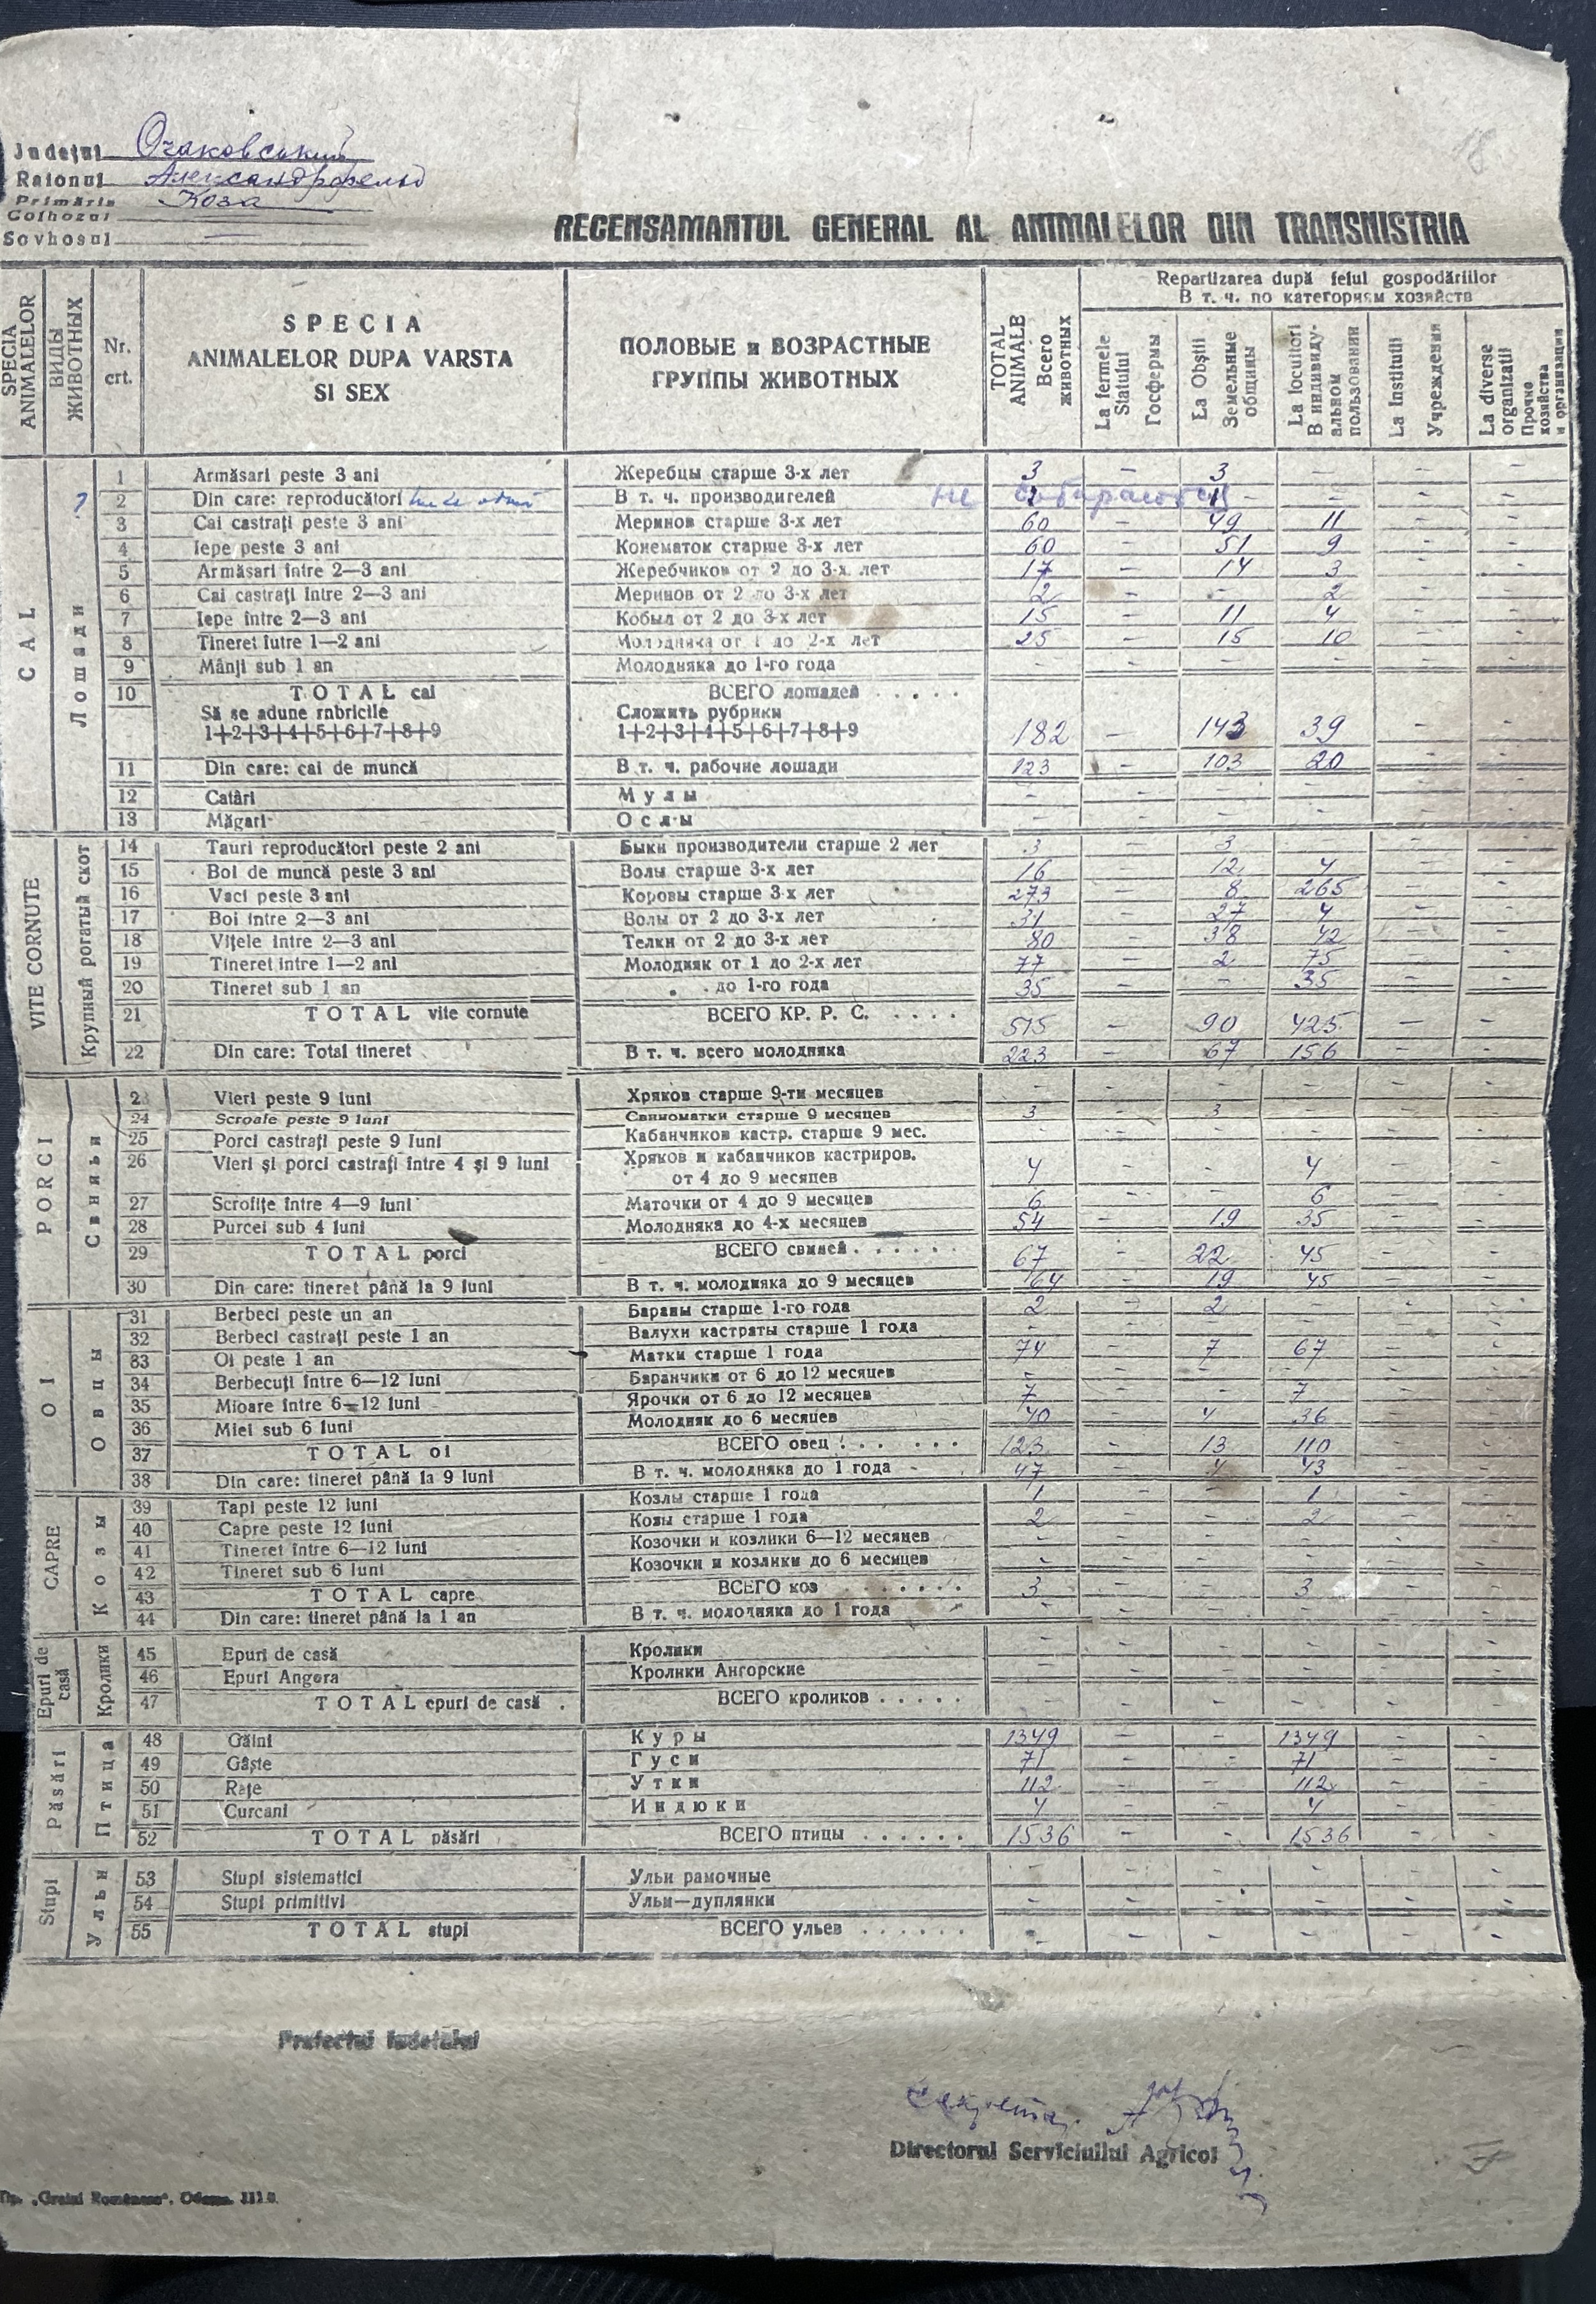 18
Judeţul Очаковський
Raionul Александрфельд
Primăria Коза
Colhozul
Sovhosul
RECENSAMANTUL GENERAL AL ANIMALELOR DIN TRANSNISTRIA
SPECIA ANIMALELOR
ВИДЫ ЖИВОТНЫХ
Nr. crt.
SPECIA ANIMALELOR DUPA VARSTA SI SEX
ПОЛОВЫЕ и ВОЗРАСТНЫЕ ГРУППЫ ЖИВОТНЫХ
TOTAL ANIMALE Всего животных
Repartizarea după felul gospodăriilor
В т. ч. по категориям хозяйств
La fermele Statului Госфермы
La Obştii Земельные общины
La locuitori В индивидуальном пользовании
La Instituţii Учреждения
La diverse organizaţii Прочие хозяйства и организации
CAL Лошади
1 Armăsari peste 3 ani Жеребцы старше 3-х лет 3 - 3 - - -
? 2 Din care: reproducători В т. ч. производителей не собираются
3 Cai castraţi peste 3 ani Меринов старше 3-х лет 60 - 49 11 - -
4 Iepe peste 3 ani Конематок старше 3-х лет 60 - 51 9 - -
5 Armăsari între 2—3 ani Жеребчиков от 2 до 3-х лет 17 - 14 3 - -
6 Cai castraţi între 2—3 ani Меринов от 2 до 3-х лет 2 - - 2 - -
7 Iepe între 2—3 ani Кобыл от 2 до 3-х лет 15 - 11 4 - -
8 Tineret între 1—2 ani Молодняка от 1 до 2-х лет 25 - 15 10 - -
9 Mânji sub 1 an Молодняка до 1-го года - - - - - -
10 TOTAL cai ВСЕГО лошадей . . . . .
Să se adune rnbricile Сложить рубрики
1+2+3+4+5+6+7+8+9 1+2+3+4+5+6+7+8+9 182 - 143 39 - -
11 Din care: cai de muncă В т. ч. рабочие лошади 123 - 103 20 - -
12 Catâri Мулы - - - - - -
13 Măgari Ослы - - - - - -
VITE CORNUTE Крупный рогатый скот
14 Tauri reproducători peste 2 ani Быки производители старше 2 лет 3 - 3 - - -
15 Boi de muncă peste 3 ani Волы старше 3-х лет 16 - 12 4 - -
16 Vaci peste 3 ani Коровы старше 3-х лет 273 - 8 265 - -
17 Boi între 2—3 ani Волы от 2 до 3-х лет 31 - 27 4 - -
18 Viţele între 2—3 ani Телки от 2 до 3-х лет 80 - 38 42 - -
19 Tineret între 1—2 ani Молодняк от 1 до 2-х лет 77 - 2 75 - -
20 Tineret sub 1 an " " до 1-го года 35 - - 35 - -
21 TOTAL vite cornute ВСЕГО КР. Р. С. . . . . 515 - 90 425 - -
22 Din care: Total tineret В т. ч. всего молодняка 223 - 67 156 - -
PORCI Свиньи
23 Vieri peste 9 luni Хряков старше 9-ти месяцев - - - - - -
24 Scroafe peste 9 luni Свиноматки старше 9 месяцев 3 - 3 - - -
25 Porci castraţi peste 9 luni Кабанчиков кастр. старше 9 мес. - - - - - -
26 Vieri şi porci castraţi între 4 şi 9 luni Хряков и кабанчиков кастриров.
от 4 до 9 месяцев 4 - - 4 - -
27 Scrofiţe între 4—9 luni Маточки от 4 до 9 месяцев 6 - - 6 - -
28 Purcei sub 4 luni Молодняка до 4-х месяцев 54 - 19 35 - -
29 TOTAL porci ВСЕГО свиней . . . . . . 67 - 22 45 - -
30 Din care: tineret până la 9 luni В т. ч. молодняка до 9 месяцев 64 - 19 45 - -
OI Овцы
31 Berbeci peste un an Бараны старше 1-го года 2 - 2 - - -
32 Berbeci castraţi peste 1 an Валухи кастраты старше 1 года - - - - - -
33 Oi peste 1 an Матки старше 1 года 74 - 7 67 - -
34 Berbecuţi între 6—12 luni Баранчики от 6 до 12 месяцев - - - - - -
35 Mioare între 6—12 luni Ярочки от 6 до 12 месяцев 7 - - 7 - -
36 Miei sub 6 luni Молодняк до 6 месяцев 40 - 4 36 - -
37 TOTAL oi ВСЕГО овец . . . . . . 123 - 13 110 - -
38 Din care: tineret până la 9 luni В т. ч. молодняка до 1 года 47 - 4 43 - -
CAPRE Козы
39 Tapi peste 12 luni Козлы старше 1 года 1 - - 1 - -
40 Capre peste 12 luni Козы старше 1 года 2 - - 2 - -
41 Tineret între 6—12 luni Козочки и козлики 6—12 месяцев - - - - - -
42 Tineret sub 6 luni Козочки и козлики до 6 месяцев - - - - - -
43 TOTAL capre ВСЕГО коз . . . . . . . 3 - - 3 - -
44 Din care: tineret până la 1 an В т. ч. молодняка до 1 года - - - - - -
Epuri de casă Кролики
45 Epuri de casă Кролики - - - - - -
46 Epuri Angora Кролики Ангорские - - - - - -
47 TOTAL epuri de casă . ВСЕГО кроликов . . . . . - - - - - -
Păsări Птица
48 Găini Куры 1349 - - 1349 - -
49 Gâşte Гуси 71 - - 71 - -
50 Raţe Утки 112 - - 112 - -
51 Curcani Индюки 4 - - 4 - -
52 TOTAL păsări ВСЕГО птицы . . . . . . 1536 - - 1536 - -
Stupi Ульи
53 Stupi sistematici Ульи рамочные - - - - - -
54 Stupi primitivi Ульи—дуплянки - - - - - -
55 TOTAL stupi ВСЕГО ульев . . . . . . - - - - - -
Prefectul Iudetului
Directorul Serviciuilui Agricol